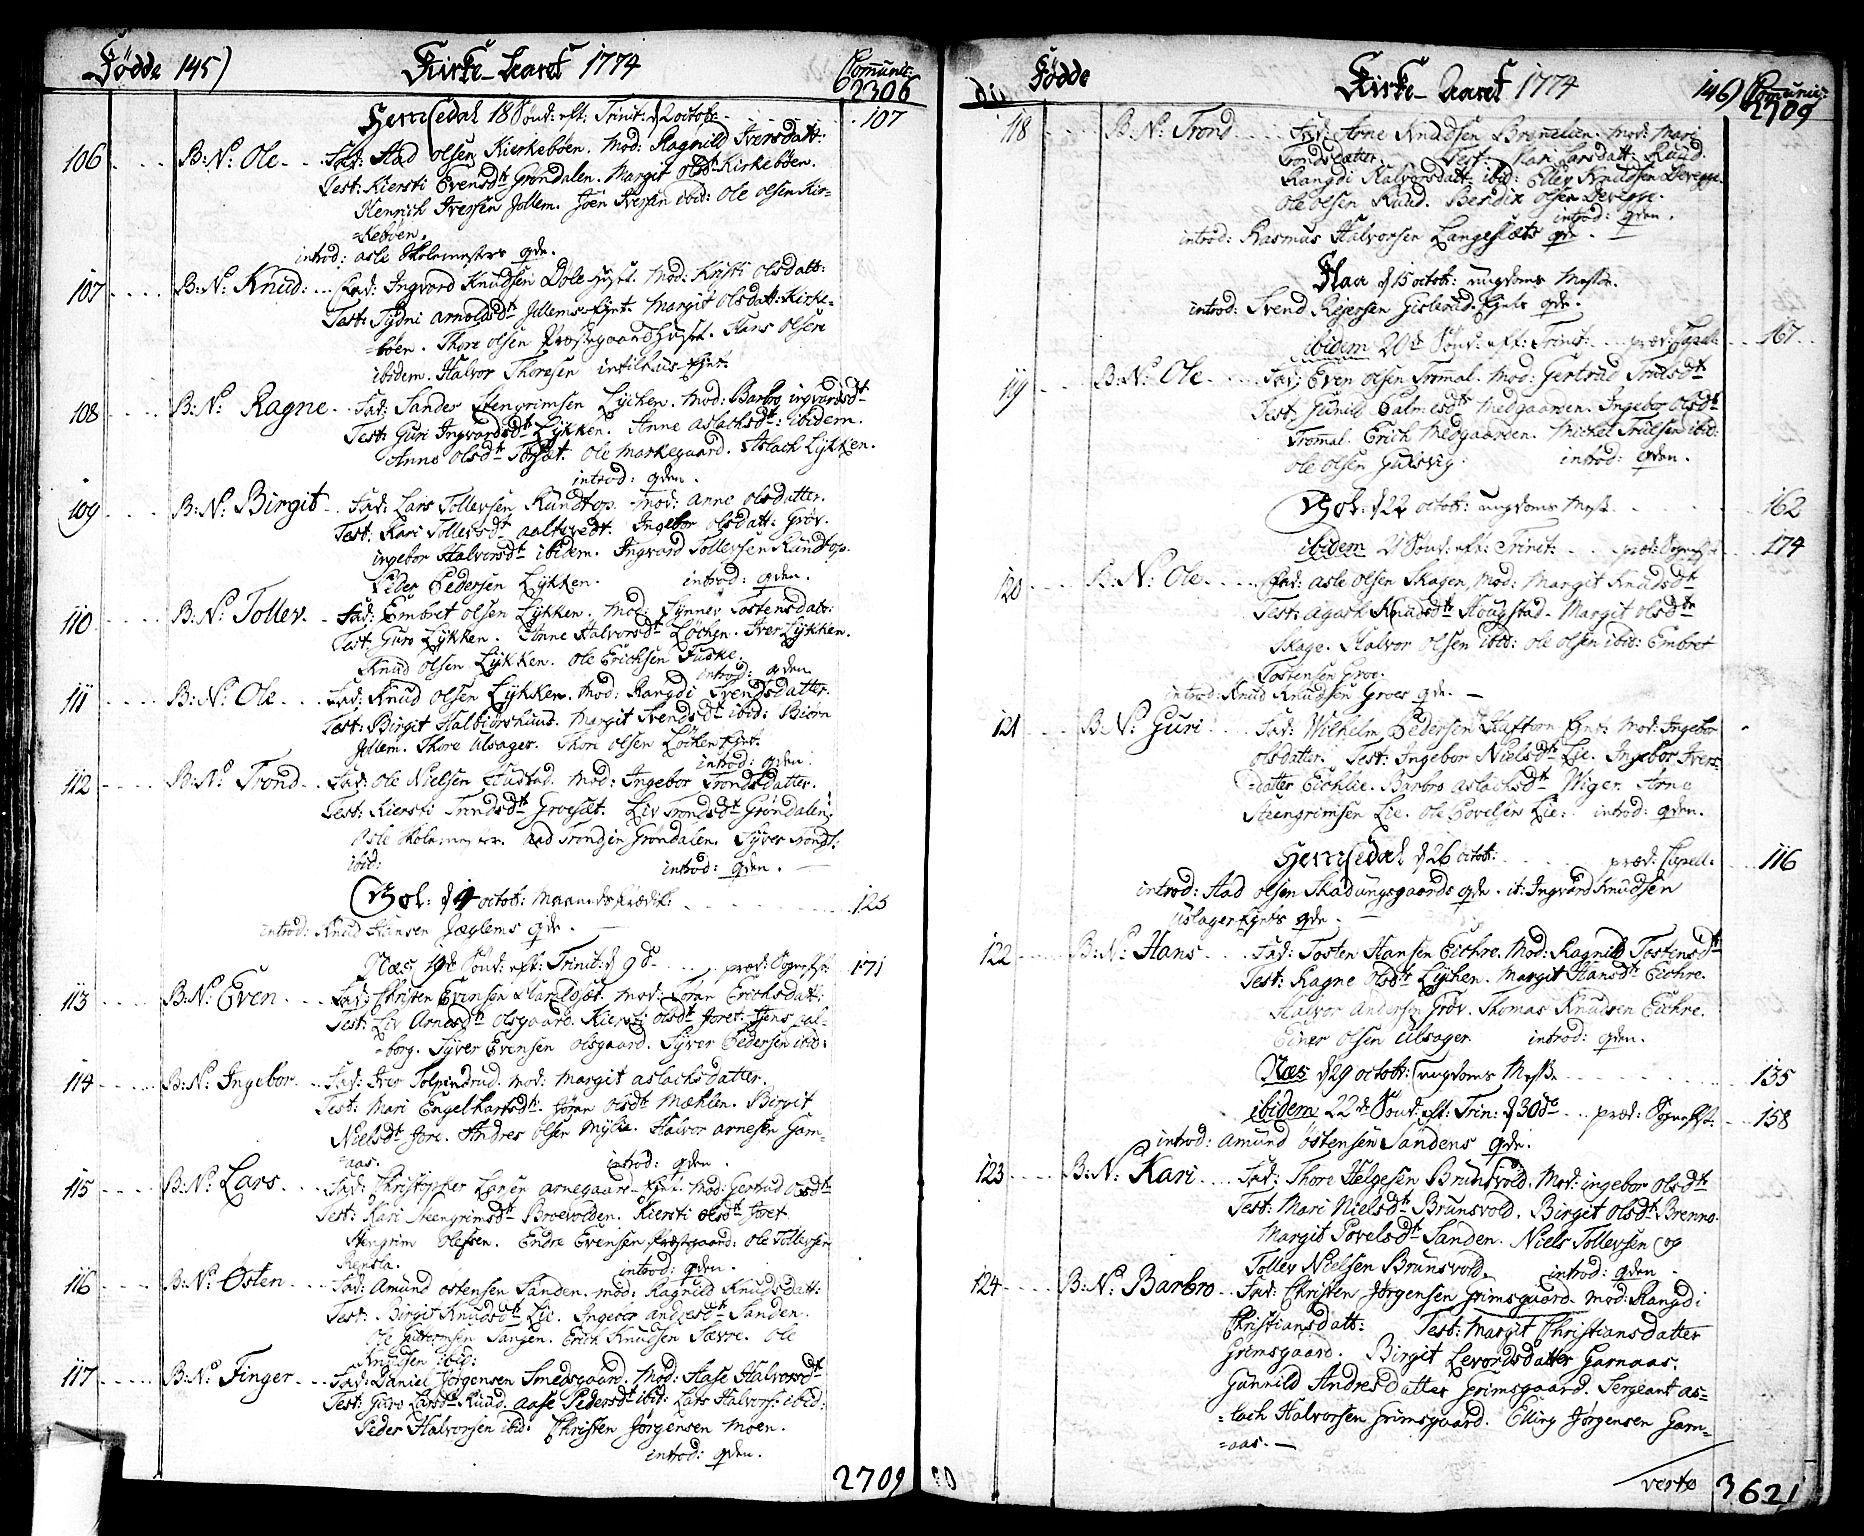 Fødde 145) Kirke-Aaret 1774 Comunic:
2306
Hemsedal 18 Sønd: eft: Trinit: d 2 octob: 107
106 B: N: Ole Fad: Aad olsen Kirkebøen. Mod: Ragnild Iversdatt:
Test: Kiersti Evensdt Grøndalen. Margit olsdt Kirkebøen.
Henrich Iversen Jollem. Joen Iversen ibid: Ole olsen Kir=
=kebøen.
introd: asle Skolemesters qde.
107 B: N: Knud: Fad: Ingvord Knudsen Mod: Kristi olsdatt:
Test: Sydni arnoldsdt Margit olsdatt: Kirke=
=bøen. Thore olsen Hans olsen
ibidem. Halvor Thoresen
108 B: N: Ragne Fad: Sander Stengrimsen Lycken. Mod: Barbo ingvordsdt
Test: Guri Ingvordsdt Lykken. Anne aslachsdt: ibidem.
Anne olsdt Torset. Ole Markegaard. Aslach Lykken.
introd: qden.
109 B: N: Birgit Fad: Lars Tollevsen Rundtop. Mod: anne olsdatter.
Test: Kari Tollevsdt aaltvedt. Ingebor olsdatt: Grøv.
ingebor Halvorsdt ibidem. Ingvord Tollevsen Rundtop.
Peder Pedersen Lykken. introd: qden.
110 B: N: Tollev. Fad: Embret olsen Lykken. Mod: Synnev Tostensdatt:
Test: Guro Lykken. Anne Halvorsdt Løcken. Iver Lykken.
Knud olsen Lykken. ole Erichsen Tuske.
introd: qden.
111 B: N: Ole Fad: Knud olsen Lykken. Mod: Rangdi Svendsdatter.
Test: Birgit Halbiørshuus. Margit Svendsdt ibid: Biørn
Jollem. Thore Ulsager. Thori olsen Løcken
introd: qden.
112 B: N: Trond Fad: Ole Nielsen Tustad. Mod: Ingebor Trondsdatter.
Test: Kiersti Trondsdt Groeset. Liv Trondsdt Grøndalen.
Asle Skolemester. Grøndalen. Syver
ibid: introd: qden.
Gol: d 4 octob: Maaneds Prædik: 125
introd: Knud Hansen Jæglems qde.
Næs 19d Sønd: eft: Trinit: d 9d præd: Sogneprst. 171
113 B: N: Even Fad: Christen Evensen Haraldset. Mod: Jøran Erichsdatt:
Test: Liv Arnesdt olsgaard. Kiersti olsdt Joret. Jens
=borg. Syver Evensen olsgaard. Syver Pedersen ibid:
114 B: N: Ingebor Fad: Iver Tolpinrud. Mod: Margit aslachsdatter.
Test: Mari Engelhartsdt. Jøran olsdt Mæhlen. Birgit
Nielsdt Jore. Andres olsen Myhre. Halvor arnesen Garn=
=aas. introd: qden.
115 B: N: Lars Fad: Christopher Larsen arnegaard Mod: Gertrud olsdt
Test: Kari Steengrimsdt Broevolden. Kiersti olsdt Joret
Stengrim Olefsen. Endre Evensen Ole Tollevsen
introd: qden.
116 B: N: Østen Fad: Amund ostensen Sanden. Mod: Ragnild Knudsdatt:
Test: Birgit Knudsdt Lie. Ingebor andresdt Sanden.
Ole Guttormsen Sanden. Erich Knudsen Særre. Ole
Knudsen ibid:
117 B: N: Finger Fad: Daniel Jørgensen Smedsgaard. Mod: Aase Halvorsdt
Test: Guro Larsdt Ruud. aase Pedersdt ibid: Lars Halvors: ibid:
Peder Halvorsen ibid: Christen Jørgensen Moen.
introd: qden.
2709
Fødde Kirke-Aaret 1774 146) Comunic:
2709
118 B: N: Trond Fad: Arne Knudsen Brennelien. Mod: Mari
Trondsdatter. Test: Kari Larsdatt: Ruud.
Rangdi Halvorsdatt: ibid: Ellev Knudsen Deregge.
Ole olsen Ruud. Berdix olsen Deregge.
introd: qden.
introd: Rasmus Halvorsen Langeslæts qde.
Flaa d 15 octob: ungdoms Messe.
introd: Svend Reiersen Gislerud qde.
ibidem 20d Sønd: eft: Trinit: præd: Capell: 167
119 B: N: Ole Fad: Even olsen Tromal. Mod: Gertrud Truelsdt
Test: Gunild Palmesdt Medgaarden. Ingebor olsdt
Tromal. Erich Medgaarden. Michel Truelsen ibid:
Ole olsen Gulsvig. introd: qden.
Gol: d 22 octob: ungdoms Mess. 162
ibidem 21 Sønd: eft: Trinit: præd: Sogneprst. 174
120 B: N: Ole Fad: asle olsen Skagen, Mod: Margit Knudsdt
Test: agath Knudsdt Hougstad. Margit olsdt
Skage. Halvor olsen ibid: ole olsen ibid: Embret
Tostensen Groe.
introd: Knud Knudsen Groes qde.
121 B: N: Guri Fad: Wilhelm Pedersen Mod: Ingebor
olsdatter. Test: Ingebor Nielsdt Lie. Ingebor Ivers=
=datter Eichlie. Barbro aslachsdt Wiger. Arne
Steengrimsen Lie. Ole Povelsen Lie. introd: qden.
Hemsedal d 26 octob: præd: Capell: 116
introd: Aad olsen Skadungsgaards qde. it: Ingvord Knudsen
Uslager qde.
122 B: N: Hans Fad: Tosten Hansen Eichre. Mod: Ragnild Tostensdt
Test: Ragne olsdt Lykken. Margit Hansdt Eichre.
Halvor Andersen Grøv. Thomas Knudsen Eichre.
Einer olsen Ulsager introd: qden.
Næs d 29 octob: ungdoms Messe 135
ibidem 22d Sønd: eft: Trin: d 30d præd: Sogneprst. 158
introd: amund østensen Sandens qde.
123 B: N: Kari Fad: Thore Helgesen Brunsvold. Mod: ingebor olsdt
Test: Mari Nielsdt Brunsvold. Birget olsdt Brenno.
Margit Povelsdt Sanden. Niels Tollevsen og
Tollev Nielsen Brunsvold. introd: qden.
124 B: N: Barbro Fad: Christen Jørgensen Grimsgaard. Mod: Rangdi
Christiansdatt: Test: Margit Christiansdatter
Grimsgaard. Birgit Levordsdatter Garnaas.
Gunnild Andresdatter Grimsgaard. Sergeant as=
=lach Halvorsen Grimsgaard. Elling Jørgensen Garn=
=aas.
verte 3621